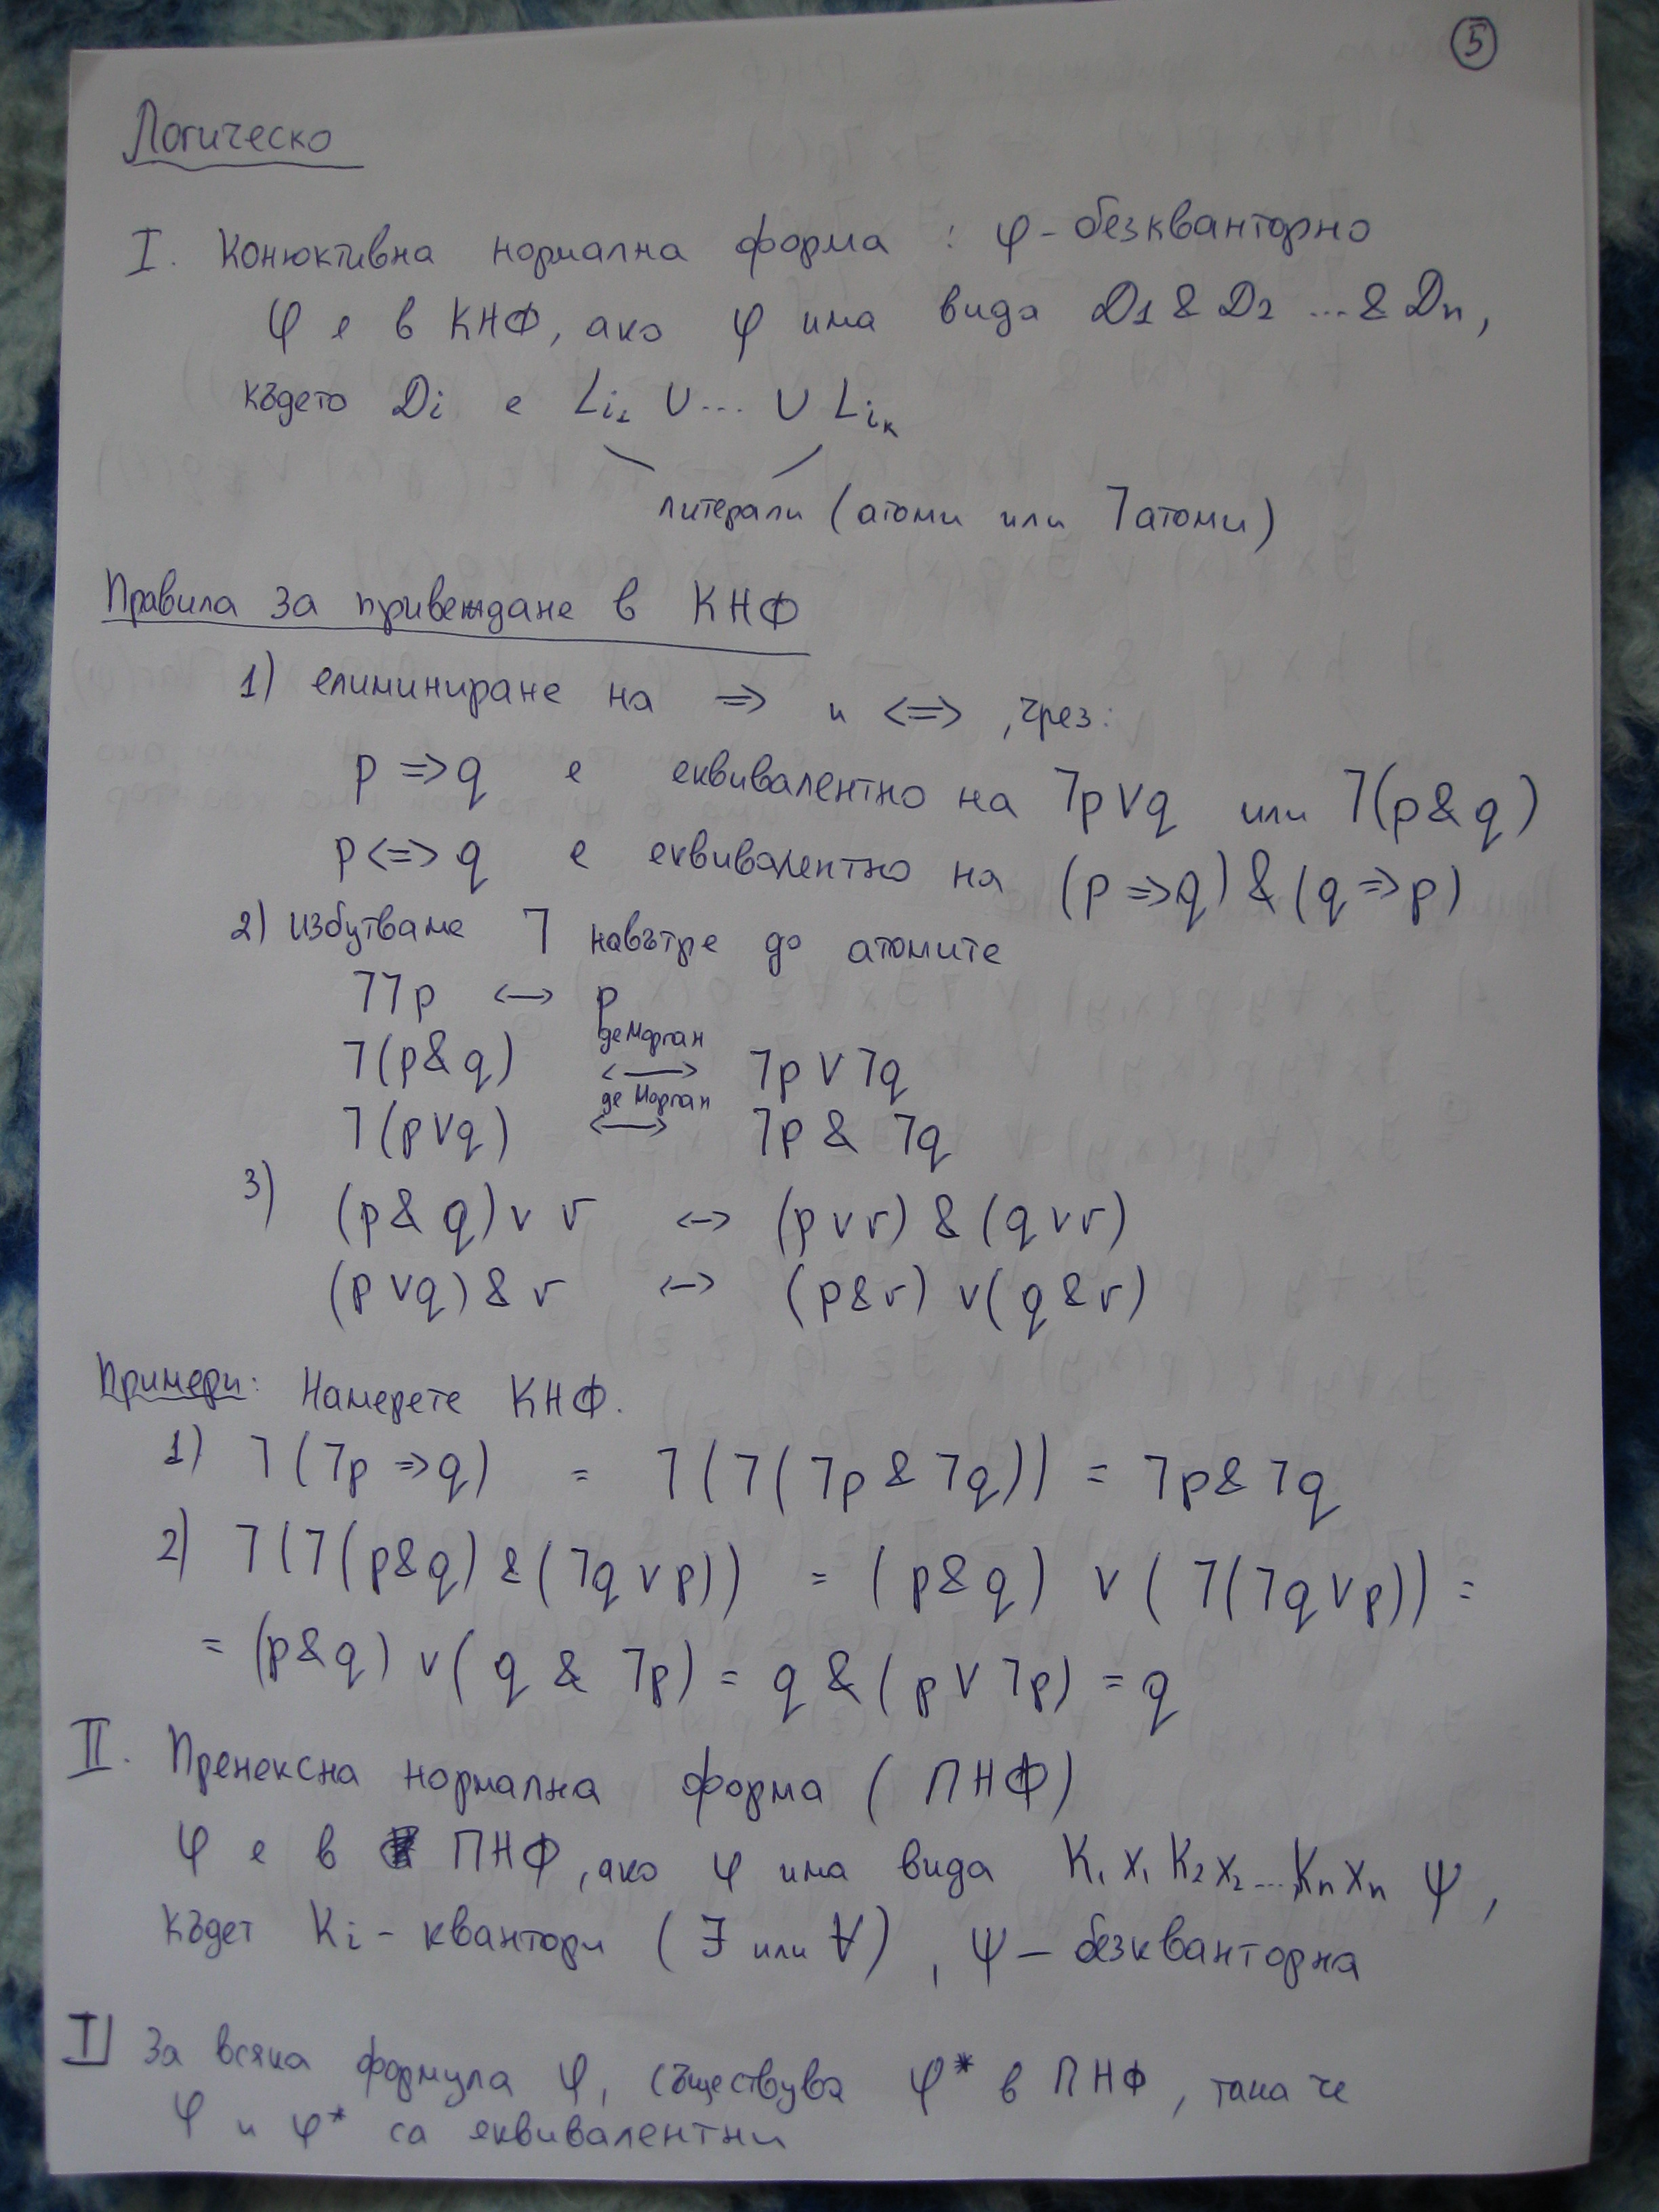 5
Логическо
I. Конюктивна нормална форма : φ - безкванторно
φ е в КНФ, ако φ има вида D1 & D2 ... & Dn,
където Di е Li1 ∪ ... ∪ Lik
литерали (атоми или ⅂атоми)
Правила за привеждане в КНФ
1) елиминиране на => и <=>, чрез:
p => q е еквивалентно на ⅂p∨q или ⅂(p & q)
p <=> q е еквивалентно на (p => q) & (q => p)
2) избутваме ⅂ навътре до атомите
⅂⅂p <-> p
⅂(p & q) <-> де Морган ⅂p ∨ ⅂q
⅂(p∨q) <-> де Морган ⅂p & ⅂q
3) (p & q) ∨ r <-> (p ∨ r) & (q ∨ r)
(p ∨ q) & r <-> (p & r) ∨ (q & r)
Примери: Намерете КНФ.
1) ⅂(⅂p => q) = ⅂(⅂(⅂p & ⅂q)) = ⅂p & ⅂q
2) ⅂(⅂(p & q) & (⅂q ∨ p)) = (p & q) ∨ (⅂(⅂q ∨ p)) =
= (p & q) ∨ (q & ⅂p) = q & (p ∨ ⅂p) = q
II. Пренексна нормална форма (ПНФ)
φ е в ПНФ, ако φ има вида K1 x1 K2 x2 ... Kn xn ψ,
къдет Ki - квантори (∃ или ∀), ψ - безкванторна
T| За всяка формула φ, съществува φ* в ПНФ, така че
φ и φ* са еквивалентни